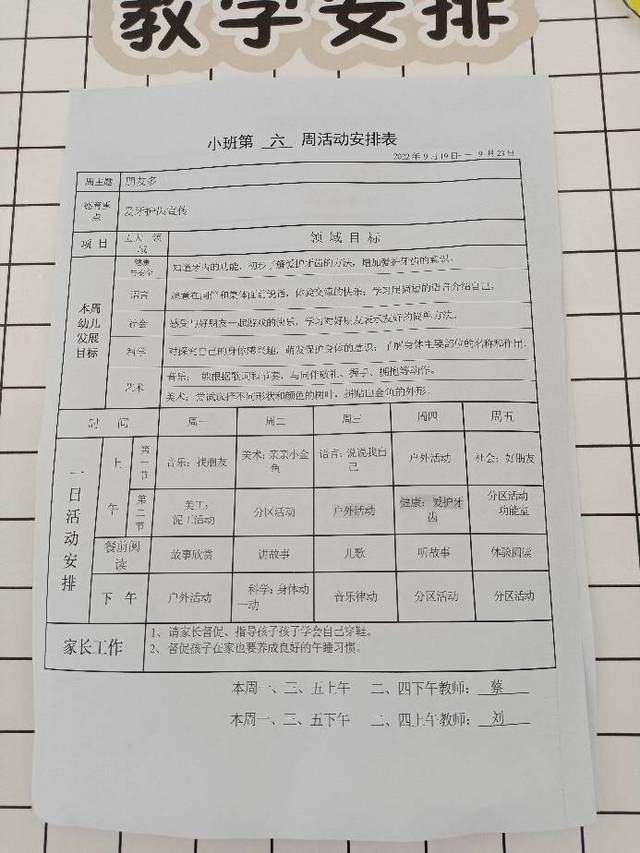 教学安排
小班第 六 周活动安排表
2022年9月19日-- 9月23日
周主题 朋友多
保育重点 爱牙护齿宣传
项目 五大领域 领域目标
本周幼儿发展目标
健康与安全 知道牙齿的功能，初步了解爱护牙齿的方法，增加爱护牙齿的意识。
语言 愿意在同伴和集体面前说话，体会交流的快乐；学习用简短的语言介绍自己。
社会 感受与好朋友一起游戏的快乐，学习对好朋友表示友好的简单方法。
科学 对探究自己的身体感兴趣，萌发保护身体的意识；了解身体主要部位的名称和作用。
艺术 音乐：能根据歌词和节奏，与同伴敬礼、握手、拥抱等动作。
美术：尝试选择不同形状和颜色的树叶，拼贴出金鱼的外形。
时间 周一 周二 周三 周四 周五
一日活动安排
上午 第一节 音乐：找朋友 美术：亲亲小金鱼 语言：说说我自己 户外活动 社会：好朋友
第二节 美工：泥工活动 分区活动 户外活动 健康：爱护牙齿 分区活动 功能室
餐前阅读 故事欣赏 讲故事 儿歌 听故事 体验阅读
下午 户外活动 科学：身体动一动 音乐律动 分区活动 分区活动
家长工作 1、请家长督促、指导孩子孩子学会自己穿鞋。
2、督促孩子在家也要养成良好的午睡习惯。
本周一、三、五上午 二、四下午教师： 蔡
本周一、三、五下午 二、四上午教师： 刘